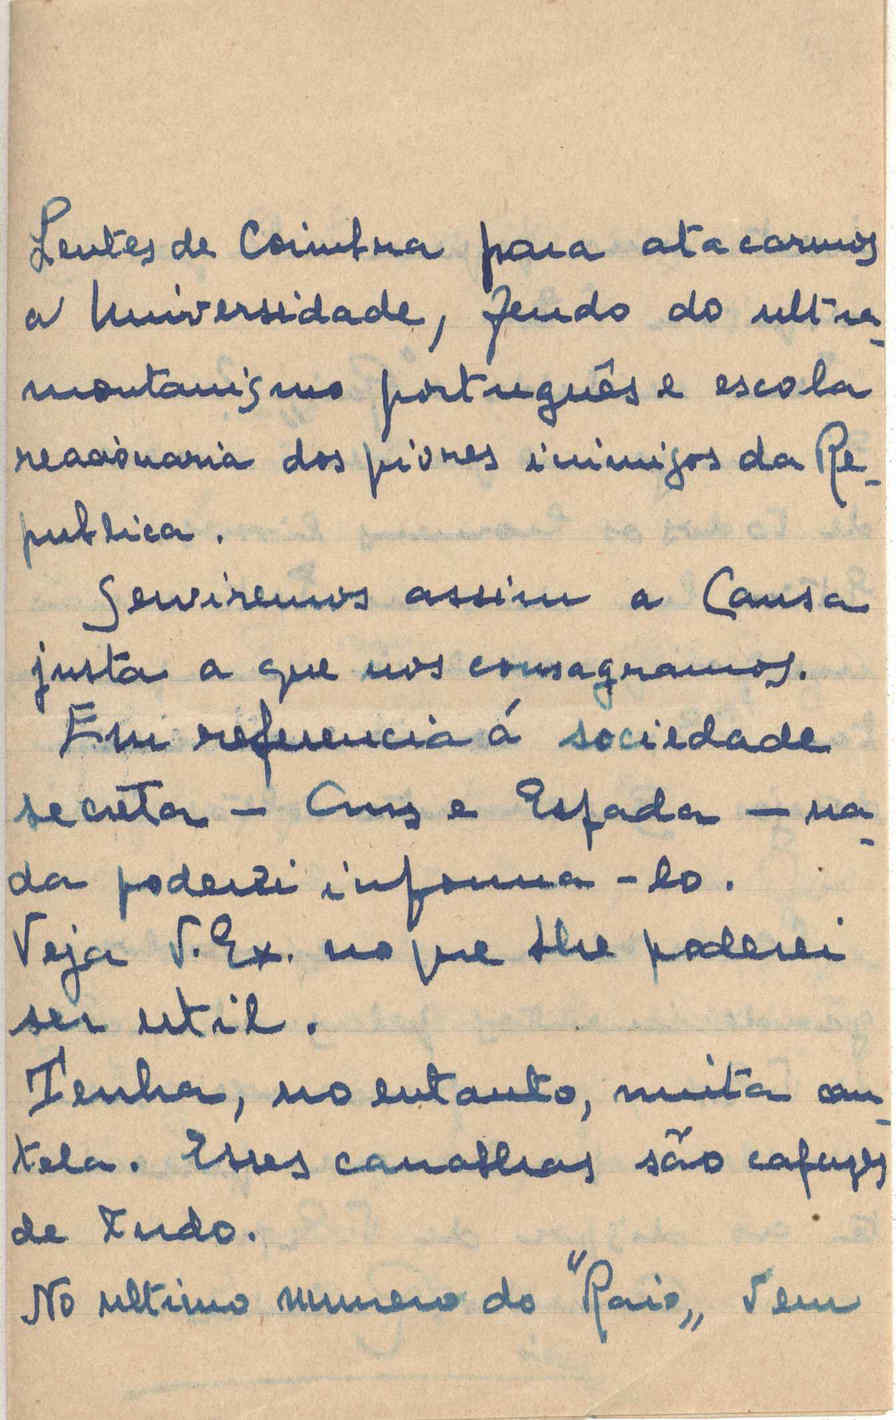 Lentes de Coimbra para atacarmos
a Universidade, feudo do ultra-
montanismo português e escola
reaccionaria dos piores inimigos da Re-
publica.
Serviremos assim a Causa
justa a que nos consagramos.
Em referencia á sociedade
secreta – Cruz e Espada – na-
da poderei informa-lo.
Veja V. Ex. no que lhe poderei
ser util.
Tenha, no entanto, muita cau-
tela. Esses canalhas são capazes
de tudo.
No ultimo numero do "Raio„ vem